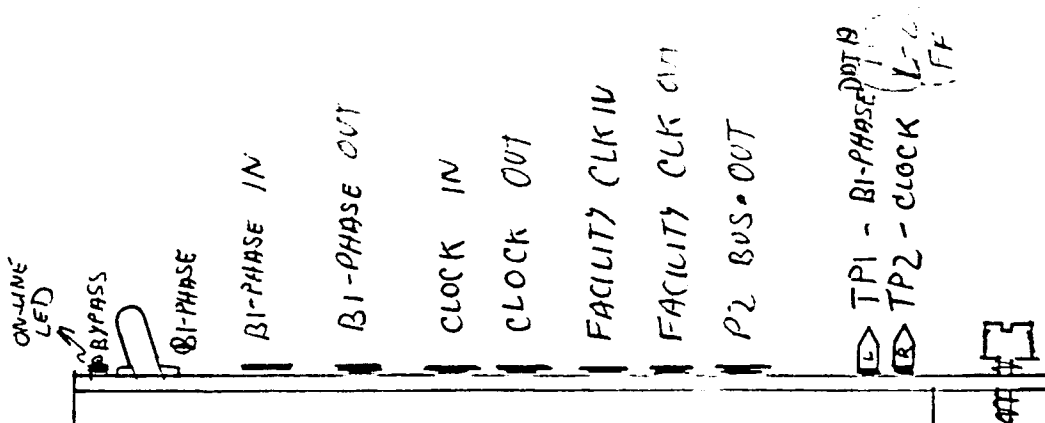 ON-LINE
LED
BYPASS
BI-PHASE
BI-PHASE IN
BI-PHASE OUT
CLOCK IN
CLOCK OUT
FACILITY CLK IN
FACILITY CLK OUT
P2 BUS • OUT
TP1 - BI-PHASE
TP2 - CLOCK
L
R